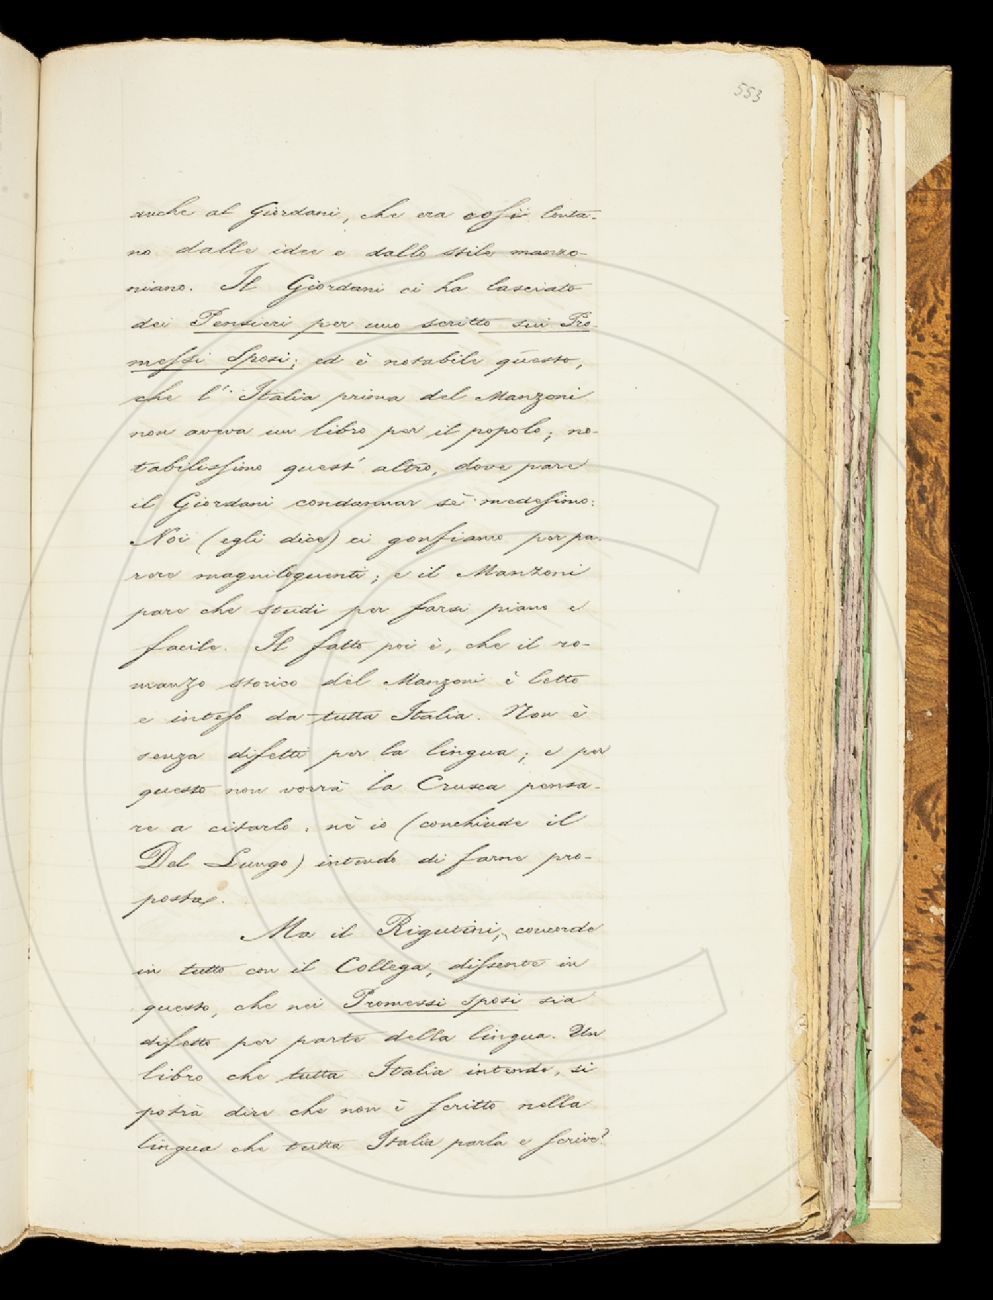 553
anche al Giordani, che era così lonta-
no dalle idee e dallo stile manzo-
niano. Il Giordani ci ha lasciato
dei Pensieri per uno scritto sui Pro
messi Sposi; ed è notabile questo,
che l'Italia prima del Manzoni
non aveva un libro per il popolo; no-
tabilissimo quest'altro, dove pare
il Giordani condannar sè medesimo:
Noi (egli dice) ci gonfiamo per pa-
rere magniloquenti; e il Manzoni
pare che studi per farsi piano e
facile. Il fatto poi è, che il ro-
manzo storico del Manzoni è letto
e inteso da tutta Italia. Non è
senza difetti per la lingua; e per
questo non vorrà la Crusca pensa-
re a citarlo: nè io (conchiude il
Del Lungo) intendo di farne pro-
posta.
Ma il Rigutini, concorde
in tutto con il Collega, dissente in
questo, che nei Promessi Sposi sia
difetto per parte della lingua. Un
libro che tutta Italia intende, si
potrà dire che non è scritto nella
lingua che tutta Italia parla e scrive?